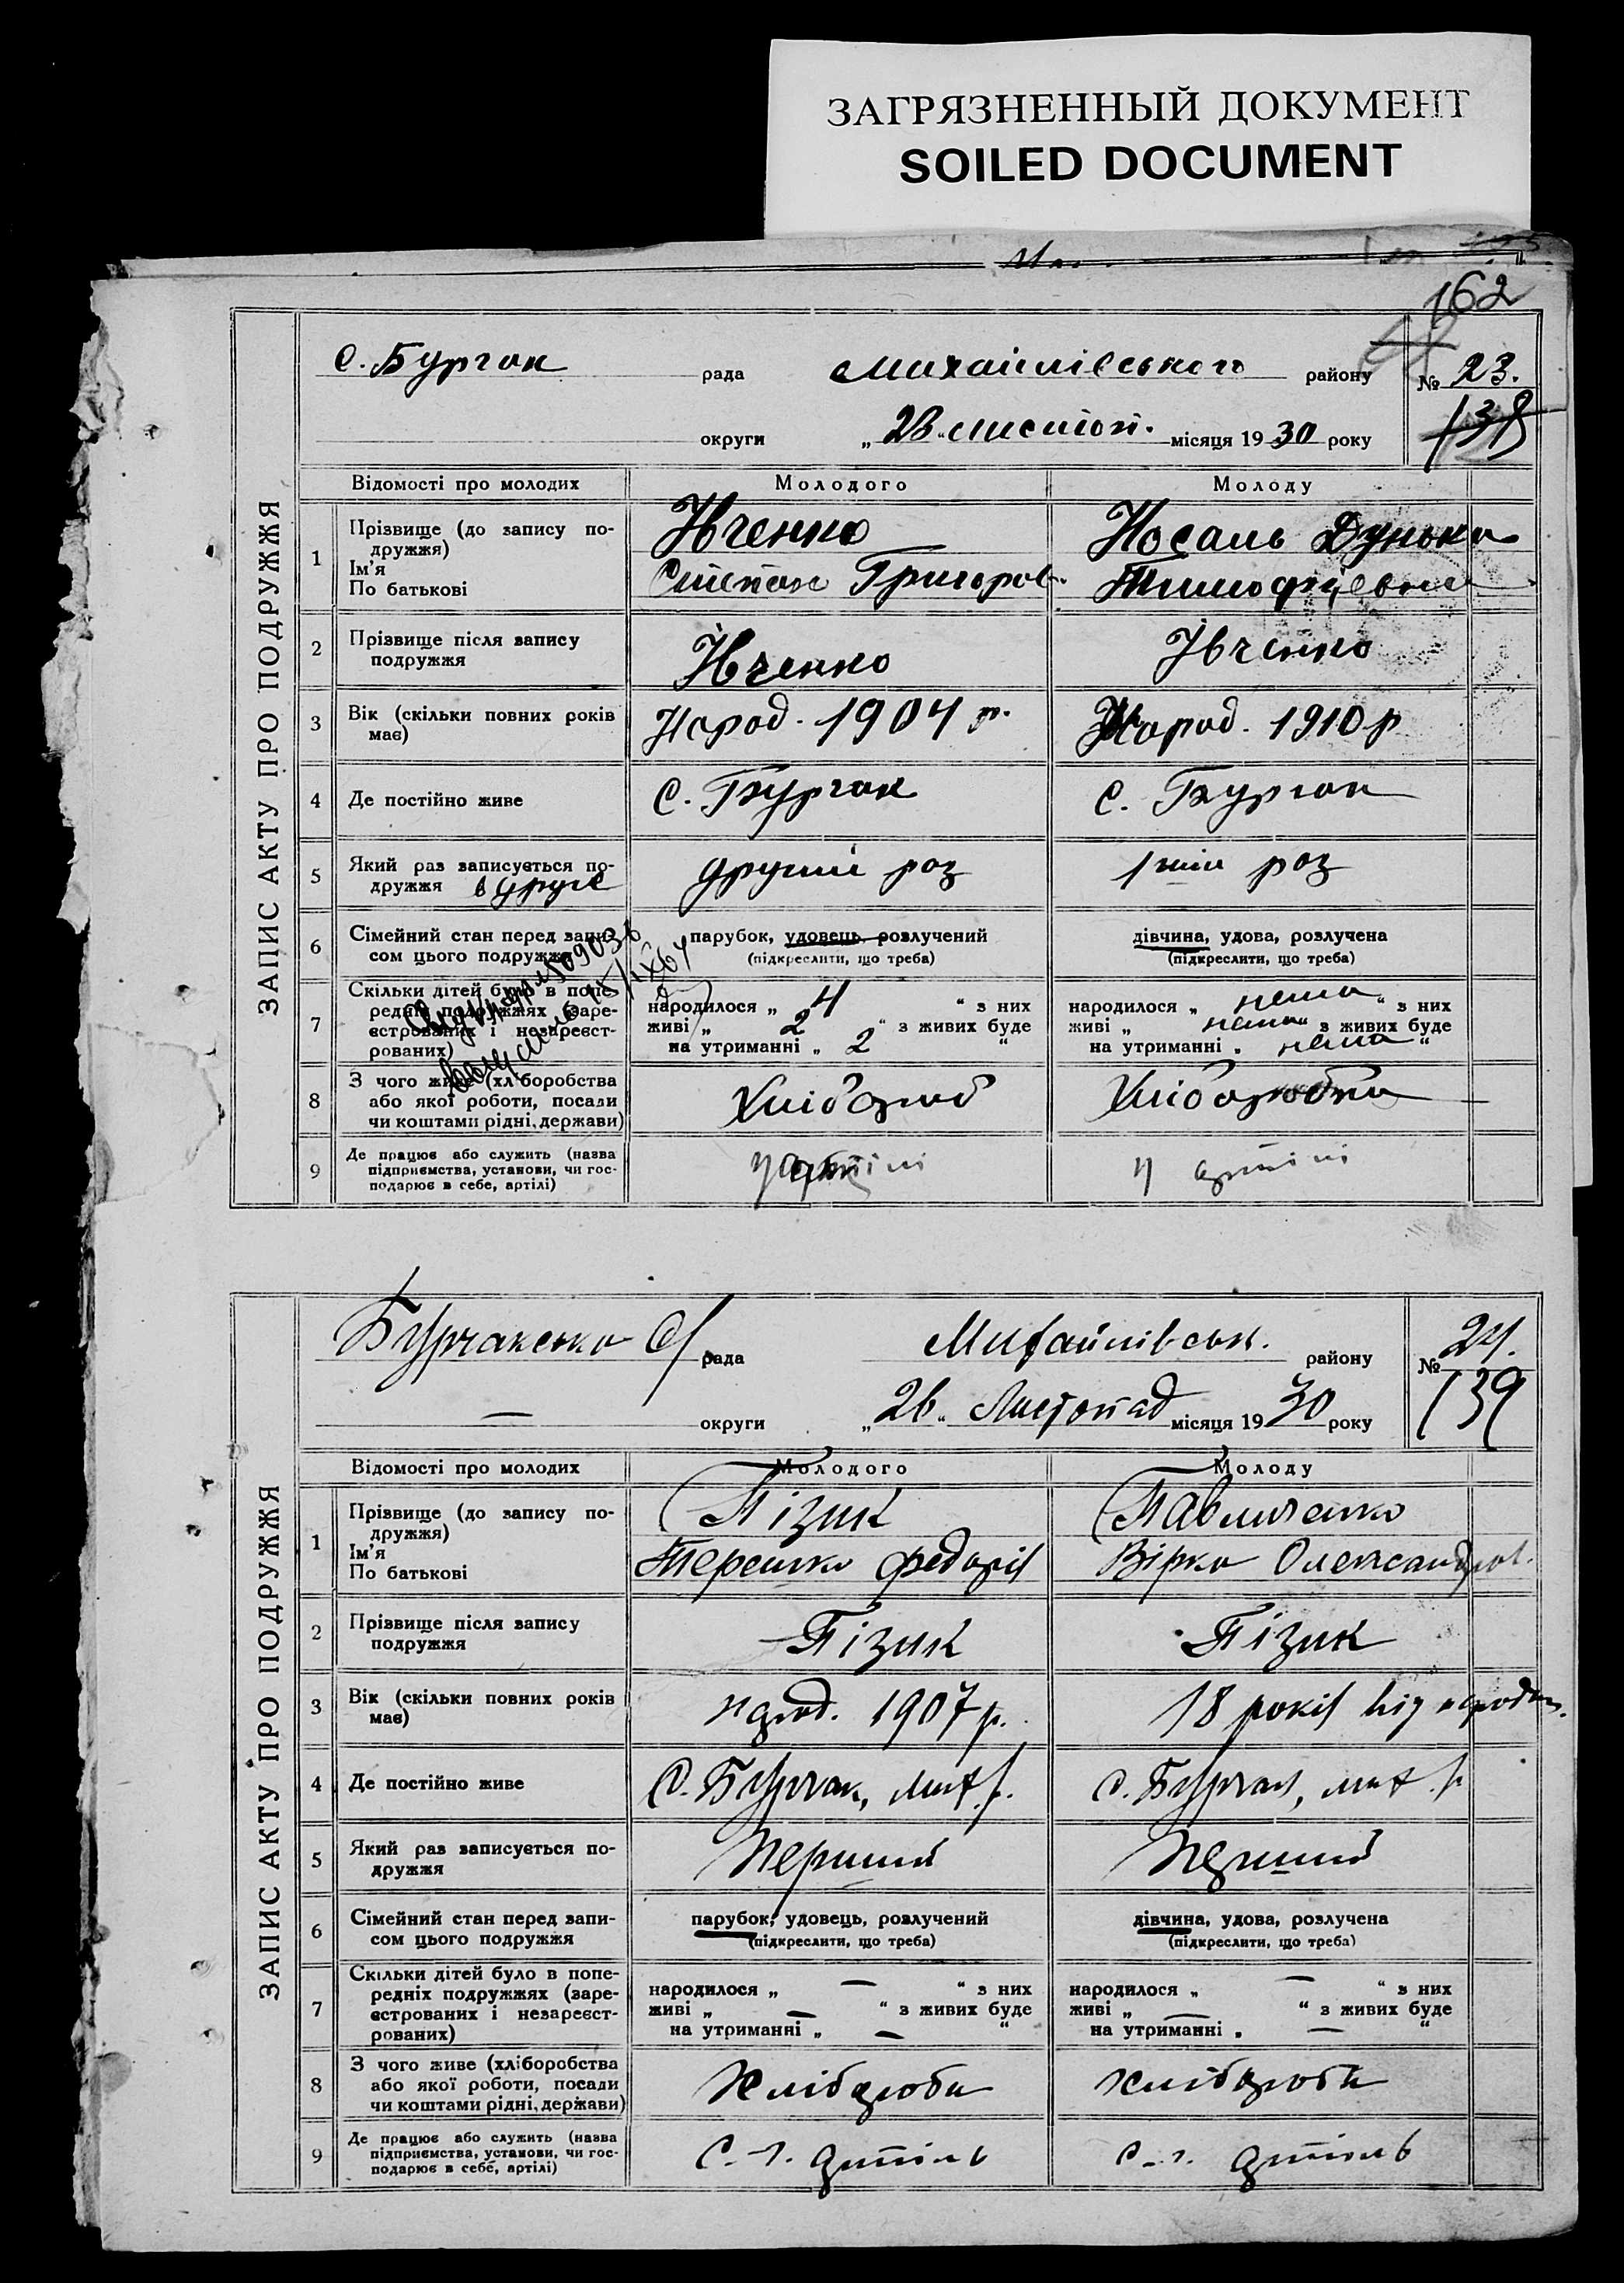 ЗАГРЯЗНЕННЫЙ ДОКУМЕНТ
SOILED DOCUMENT
162
ЗАПИС АКТУ ПРО ПОДРУЖЖЯ
с. Бурчак рада Михайлівського району № 23.
округи „ 23 „ листоп. місяця 19 30 року 138
Відомості про молодих Молодого Молоду
1 Прізвище (до запису по-
дружжя)
Ім'я
По батькові
Івченко
Степан Григоров.
Носаль Дунька
Тимофіевна
2 Прізвище після запису
подружжя
Івченко
Івченко
3 Вік (скільки повних років
має)
Народ. 1904 р.
Народ. 1910 р
4 Де постійно живе
с. Бурчак
с. Бурчак
5 Який раз записується по-
дружжя вдруге
другий раз
1ший раз
6 Сімейний стан перед запи-
сом цього подружжя
парубок, удовець, розлучений
(підкреслити, що треба)
дівчина, удова, розлучена
(підкреслити, що треба)
7 Скільки дітей було в попе-
редніх подружжях (заре-
єстрованих і незареєст-
рованих)
народилося „ 4 “ з них
живі „ 2 “ з живих буде
на утриманні „ 2 “
народилося „ нема “ з них
живі „ нема “ з живих буде
на утриманні „ нема “
8 З чого живе (хліборобства
або якої роботи, посади
чи коштами рідні, держави)
Хлібороб
Хлібаробка
9 Де працює або служить (назва
підприємства, установи, чи гос-
подарює в себе, артілі)
у артілі
у артілі
ЗАПИС АКТУ ПРО ПОДРУЖЖЯ
Бурчакська С/ рада Михайлівськ. району № 24.
— округи „ 26 „ Листопад місяця 19 30 року 139
Відомості про молодих Молодого Молоду
1 Прізвище (до запису по-
дружжя)
Ім'я
По батькові
Пізик
Терешко Федорів
Павличенко
Вірка Олександров.
2 Прізвище після запису
подружжя
Пізик
Пізик
3 Вік (скільки повних років
має)
народ. 1907 р.
18 років від народж.
4 Де постійно живе
с. Бурчак, мих. р.
с. Бурчак, мих. р
5 Який раз записується по-
дружжя
Перший
Перший
6 Сімейний стан перед запи-
сом цього подружжя
парубок, удовець, розлучений
(підкреслити, що треба)
дівчина, удова, розлучена
(підкреслити, що треба)
7 Скільки дітей було в попе-
редніх подружжях (заре-
єстрованих і незареєст-
рованих)
народилося „ — “ з них
живі „ — “ з живих буде
на утриманні „ — “
народилося „ — “ з них
живі „ — “ з живих буде
на утриманні „ — “
8 З чого живе (хліборобства
або якої роботи, посади
чи коштами рідні, держави)
Хлібороби
хлібороби
9 Де працює або служить (назва
підприємства, установи, чи гос-
подарює в себе, артілі)
С. г. артіль
С. г. артіль